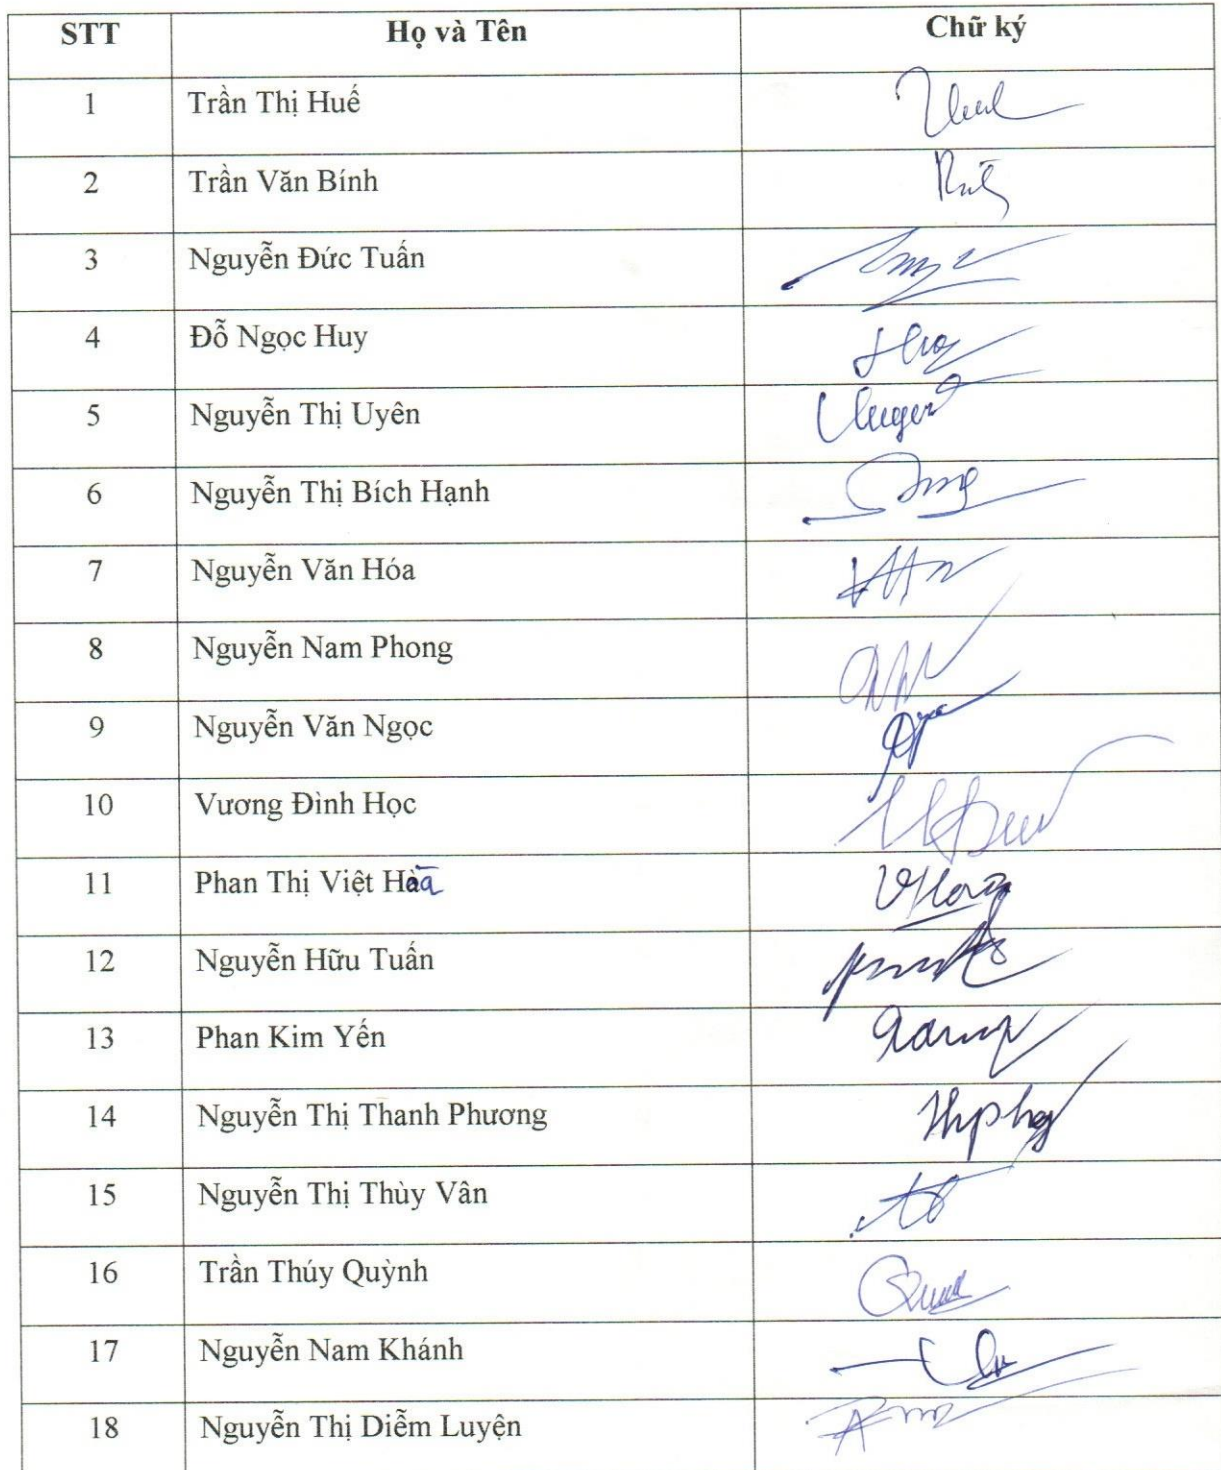 STT Họ và Tên Chữ ký
1 Trần Thị Huế
2 Trần Văn Bính
3 Nguyễn Đức Tuấn
4 Đỗ Ngọc Huy
5 Nguyễn Thị Uyên
6 Nguyễn Thị Bích Hạnh
7 Nguyễn Văn Hóa
8 Nguyễn Nam Phong
9 Nguyễn Văn Ngọc
10 Vương Đình Học
11 Phan Thị Việt
12 Nguyễn Hữu Tuấn
13 Phan Kim Yến
14 Nguyễn Thị Thanh Phương
15 Nguyễn Thị Thùy Vân
16 Trần Thúy Quỳnh
17 Nguyễn Nam Khánh
18 Nguyễn Thị Diễm Luyện